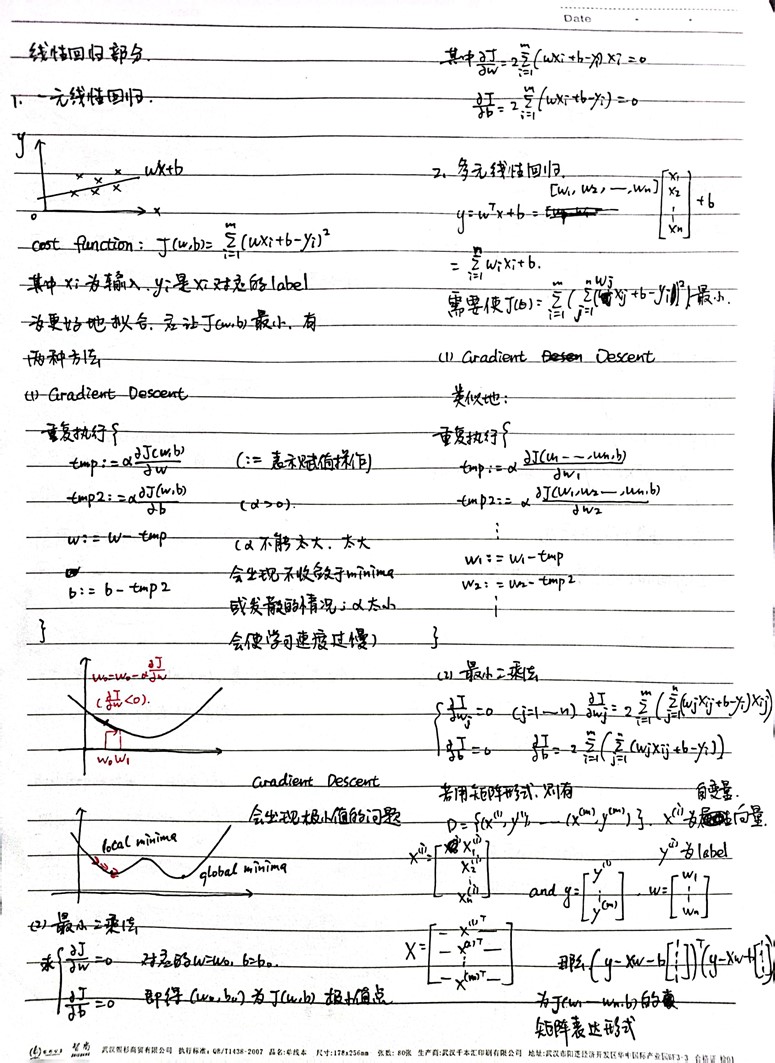 Date
线性回归部分.
1. 一元线性回归.
y
wx+b
0
x
cost function: J(w,b)= Σ_{i=1}^{m} (wxi+b-yi)²
其中 xi 为输入, yi 是 xi 对应的 label
为更好地拟合, 应让 J(w,b) 最小, 有
两种方法
(1) Gradient Descent
重复执行{
tmp:=α ∂J(w,b)/∂w (:= 表示赋值操作)
tmp2:=α ∂J(w,b)/∂b (α>0).
w:= w-tmp (α不能太大, 太大
会出现不收敛于minima
b:= b-tmp2
或发散的情况; α太小
} 会使学习速度过慢)
w0=w0-α ∂J/∂w
(∂J/∂w<0).
w0 w1
Gradient Descent
会出现极小值的问题
local minima
global minima
(2) 最小二乘法
求{ ∂J/∂w=0 对应的w=w0, b=b0.
∂J/∂b=0 即得 (w0,b0)为J(w,b) 极小值点.
其中 ∂J/∂w=2 Σ_{i=1}^{m} (wxi+b-yi)xi=0
∂J/∂b=2 Σ_{i=1}^{m} (wxi+b-yi)=0
2. 多元线性回归.
y=wᵀx+b = [w1, w2, —, wn] [x1 x2 ⋮ xn] +b
= Σ_{i=1}^{n} wixi+b.
需要使J(b)= Σ_{i=1}^{m} (Σ_{j=1}^{n} (wj xj+b-yi))² 最小.
(1) Gradient Descent
类似地:
重复执行{
tmp:=α ∂J(w1---,wn,b)/∂w1
tmp2:= α ∂J(w1,w2—,wn,b)/∂w2
⋮
w1:= w1-tmp
w2:= w2-tmp2
⋮
}
(2) 最小二乘法
{ ∂J/∂wj=0 (j=1~n) ∂J/∂wj=2 Σ_{i=1}^{m} (Σ_{j=1}^{n} (wjxij+b-yi)xij)
∂J/∂b=0 ∂J/∂b=2 Σ_{i=1}^{m} (Σ_{j=1}^{n} (wjxij+b-yi))
若用矩阵形式, 则有 自变量.
D={(x⁽¹⁾,y⁽¹⁾, --- (x⁽ᵐ⁾,y⁽ᵐ⁾)}. x⁽ⁱ⁾为向量.
x⁽ⁱ⁾=[x1⁽ⁱ⁾ x2⁽ⁱ⁾ ⋮ xn⁽ⁱ⁾] y⁽ⁱ⁾为label
and y=[y⁽¹⁾ ⋮ y⁽ᵐ⁾], w=[w1 ⋮ wn]
X=[— x⁽¹⁾ᵀ — — x⁽²⁾ᵀ — ⋮ — x⁽ᵐ⁾ᵀ —]
那么 (y-Xw-b[1 ⋮ 1])ᵀ(y-Xw-b[1 ⋮
为J(w1--wn,b)的
矩阵表达形式
武汉智尚商贸有限公司 执行标准: QB/T1438-2007 品名:单线本 尺寸:178x256mm 张数: 80张 生产商:武汉千本汇印刷有限公司